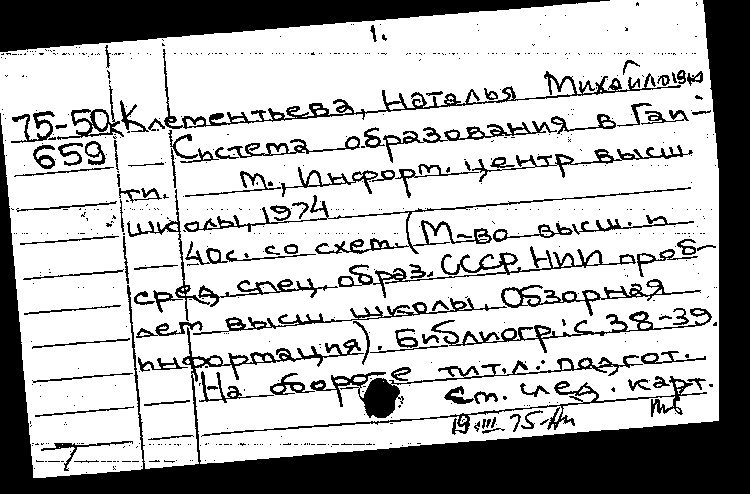 1.
75-50к Клементьева, Наталья Михайловна
659 Система образования в Гаи-
ти. М., Информ. центр высш.
школы, 1974.
40с. со схем. (М-во высш. и
сред. спец. образ. СССР. НИИ проб-
лем высш. школы. Обзорная
информация). Библиогр.: с. 38-39.
На обороте тит. л.: подгот.
См. след. карт.
19.III.75
7